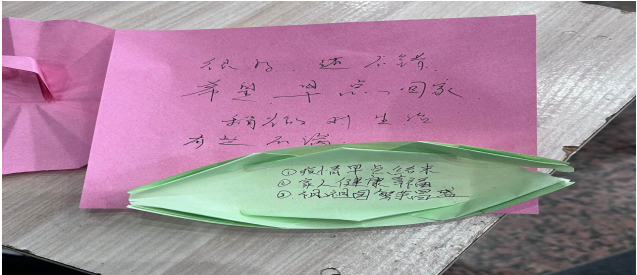 很好，还不错，
希望早点回家，
稍微对生活
有些不满
①疫情早点结束
②家人健康幸福
③祝祖国繁荣昌盛